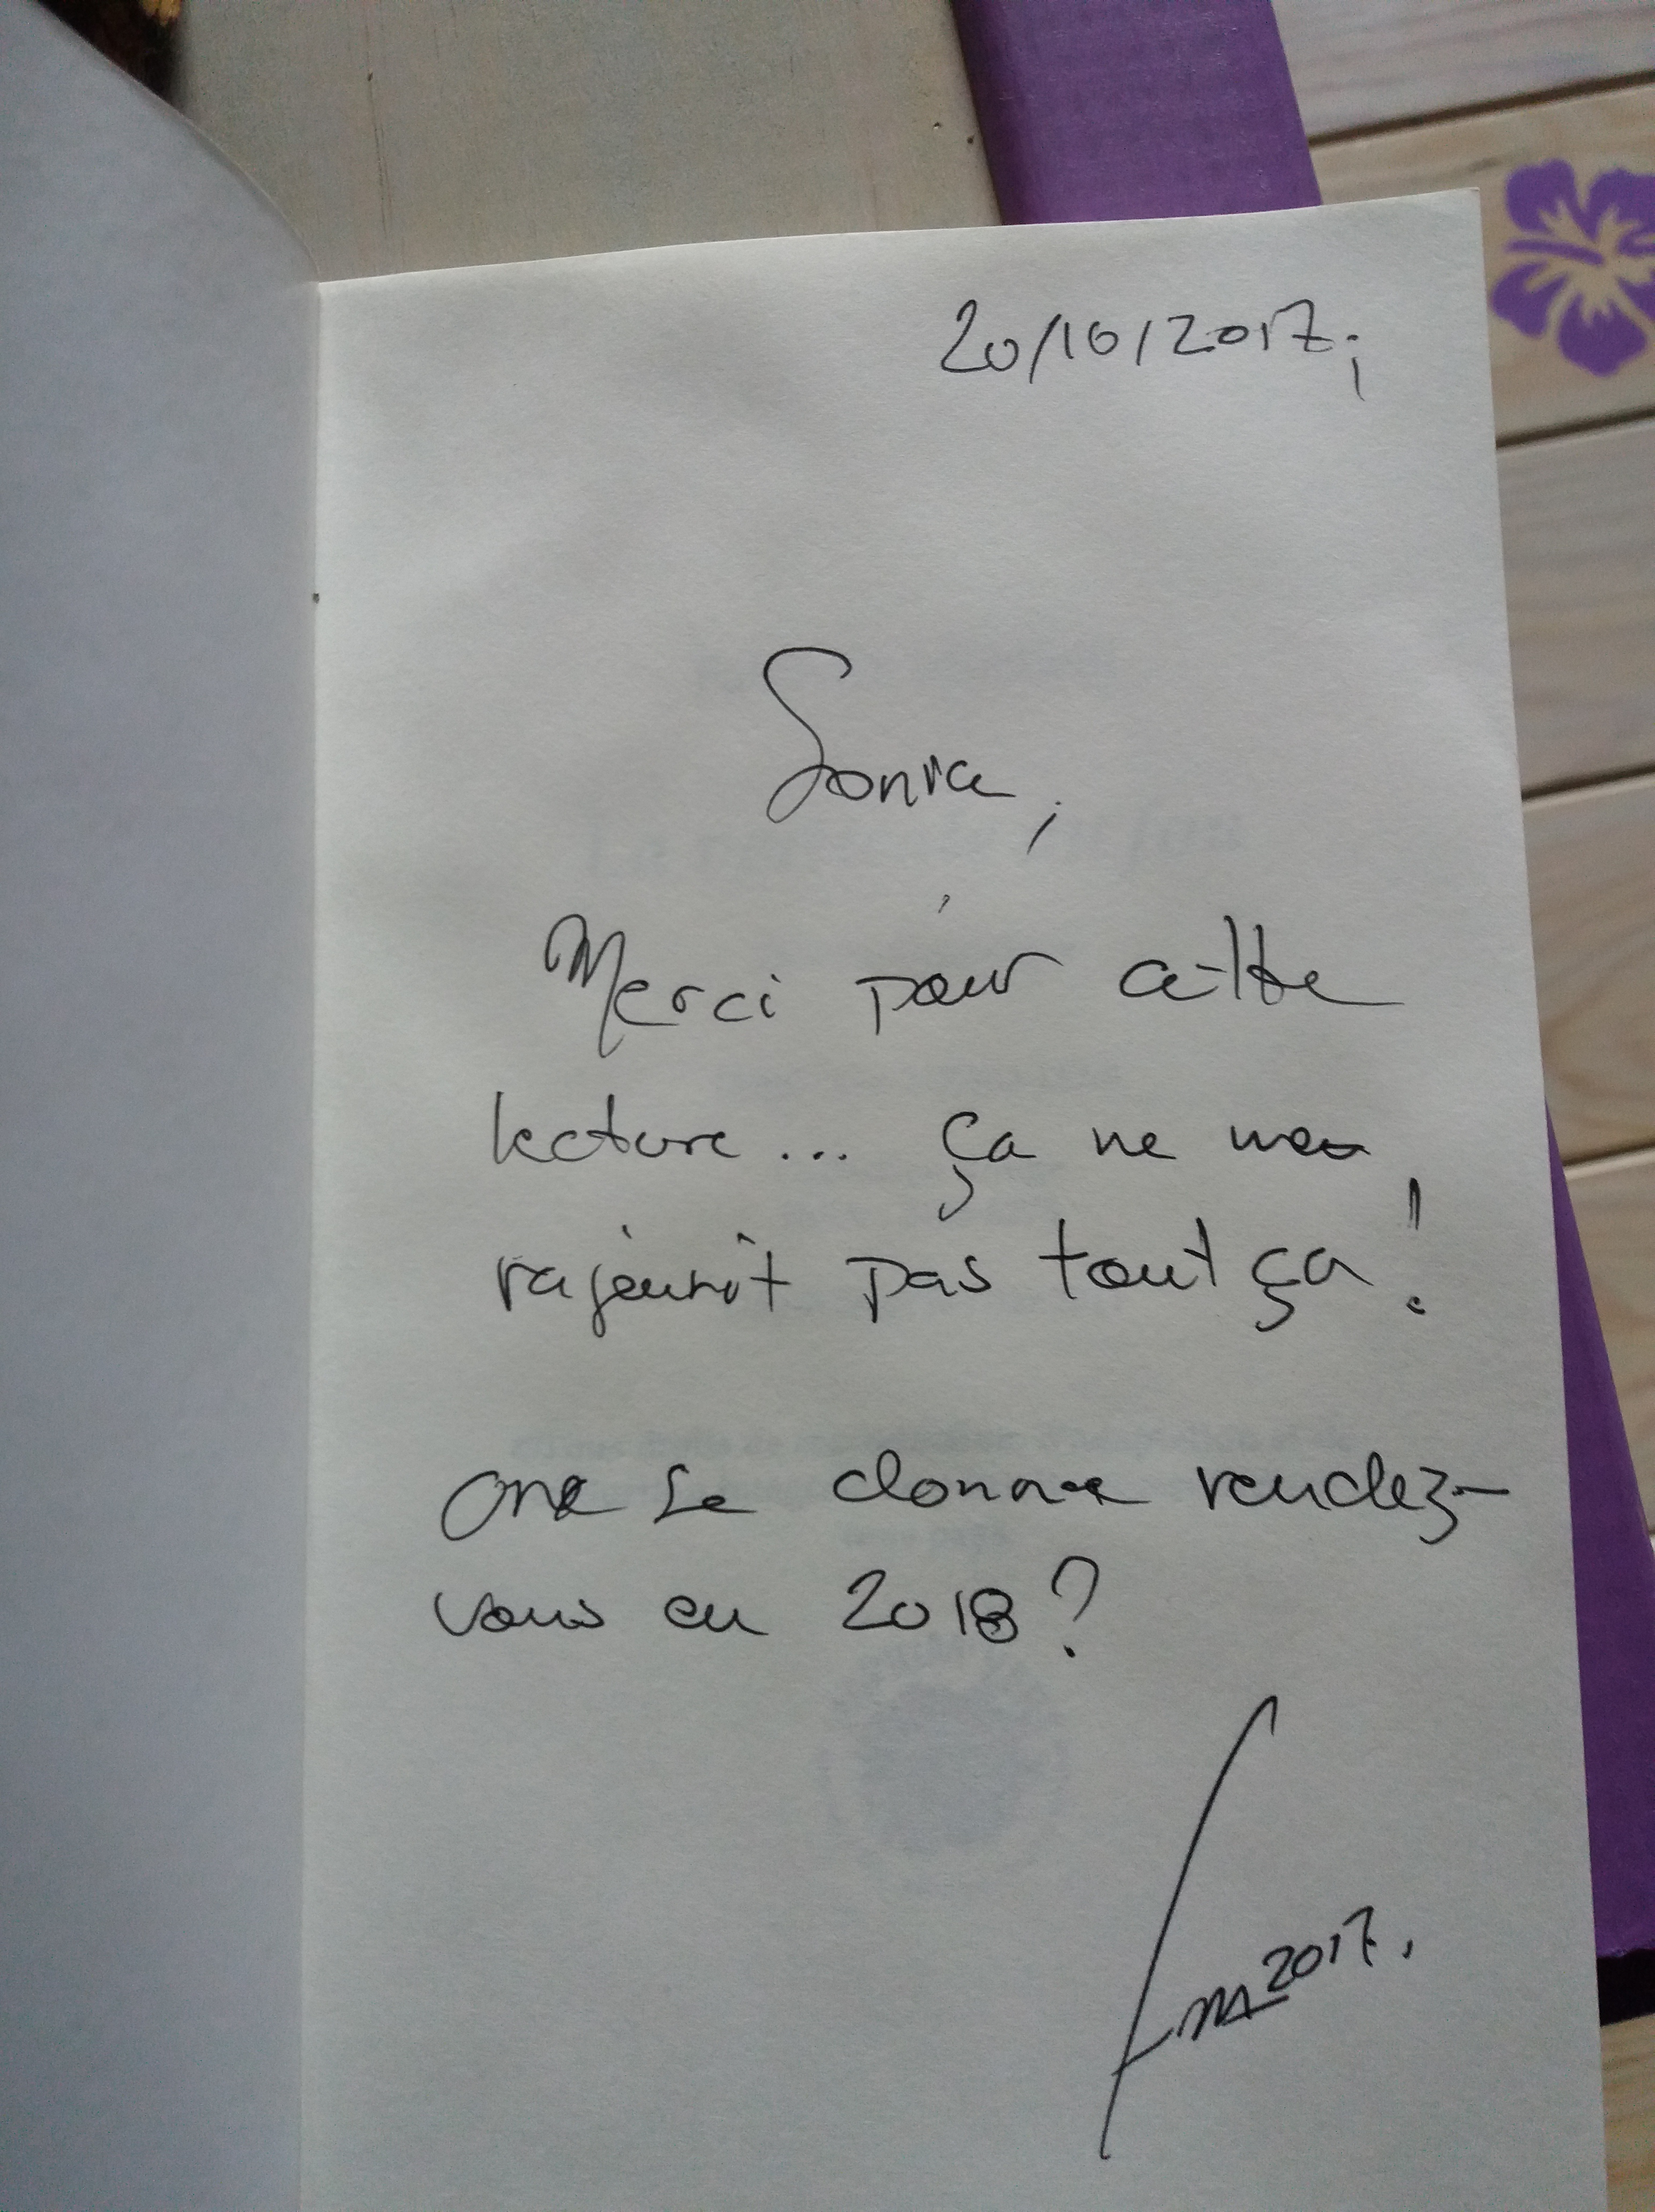 20/10/2017;
Sonia,
Merci pour cette
lecture... ça ne me
rajeunit pas tout ça !
on se donne rendez-
vous en 2018 ?
2017.